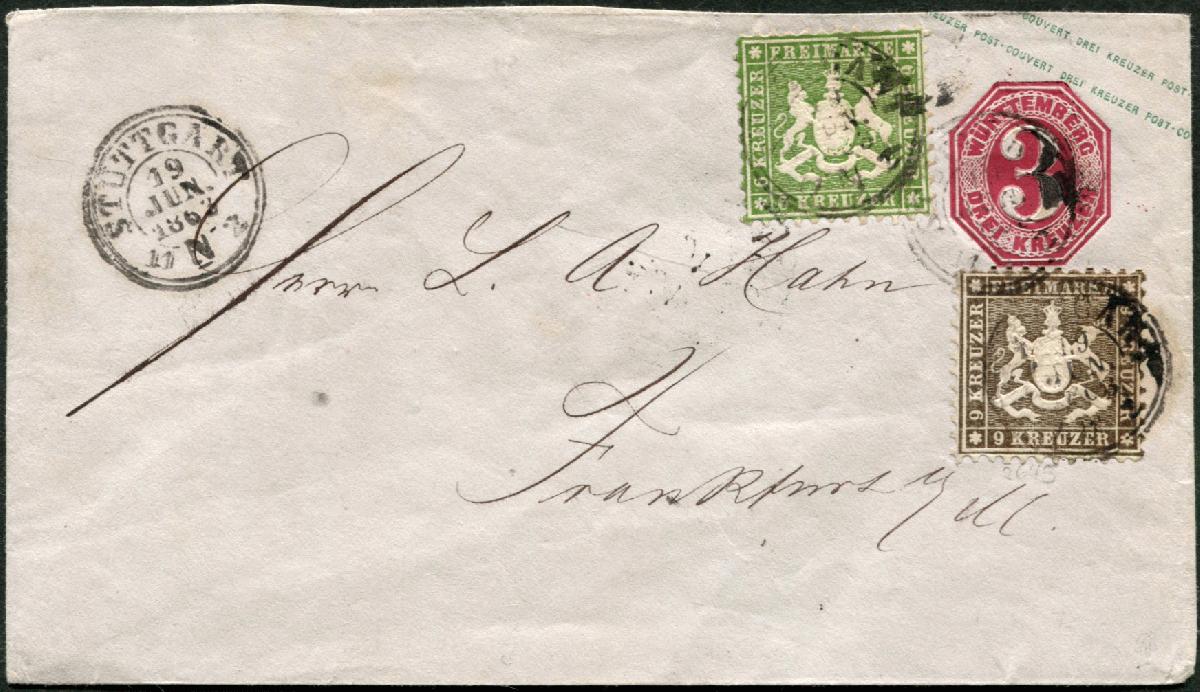 KREUZER POST-COUVERT DREI KREUZER POST-CO
COUVERT DREI KREUZER POST-
STUTTGART
19
JUN.
186
N. 2
FREIMARKE
6 KREUZER
6 KREUZER
WÜRTTEMBERG
3
DREI KREUZER
Herr L. A. Hahn
Frankfurt a/M.
FREIMARKE
9 KREUZER
9 KREUZER
9 KREUZER